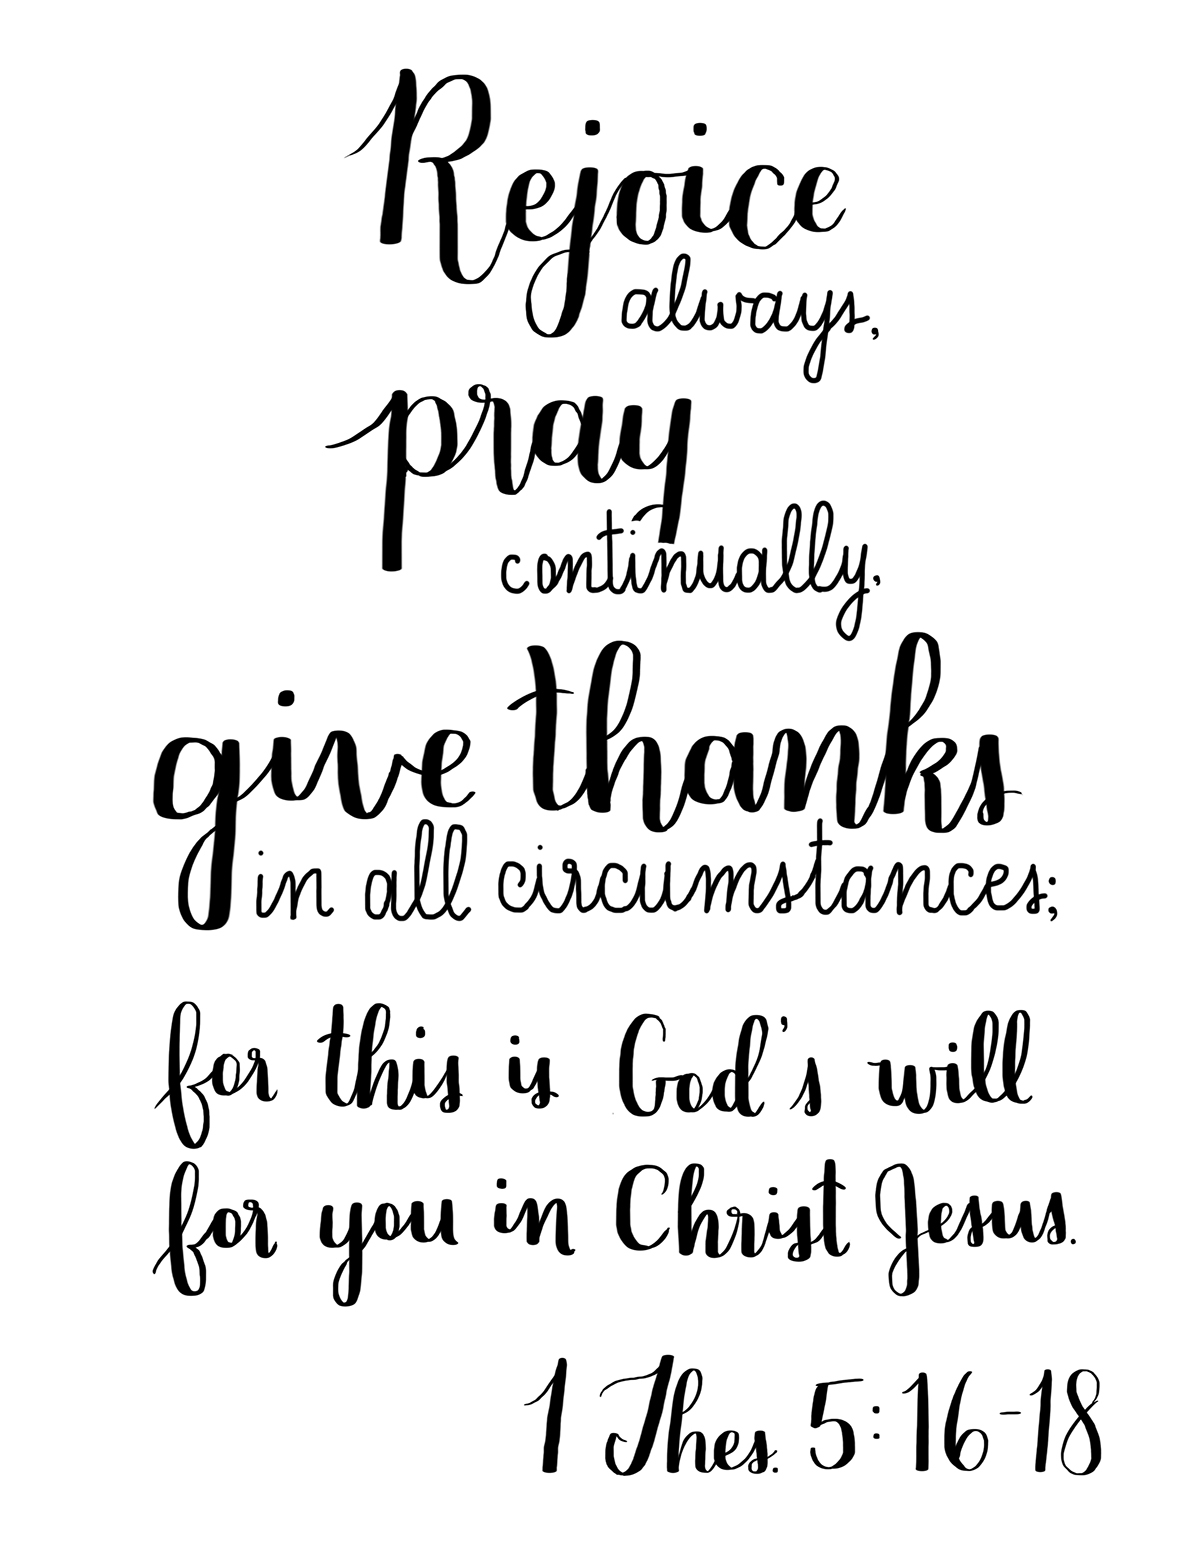 Rejoice
always,
pray
continually,
give thanks
in all circumstances;
for this is God's will
for you in Christ Jesus.
1 Thes. 5:16-18